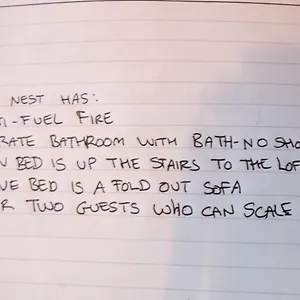 NEST HAS:
-FUEL FIRE
BATHROOM WITH BATH-NO
BED IS UP THE STAIRS TO THE
BED IS A FOLD OUT SOFA
TWO GUESTS WHO CAN SCALE